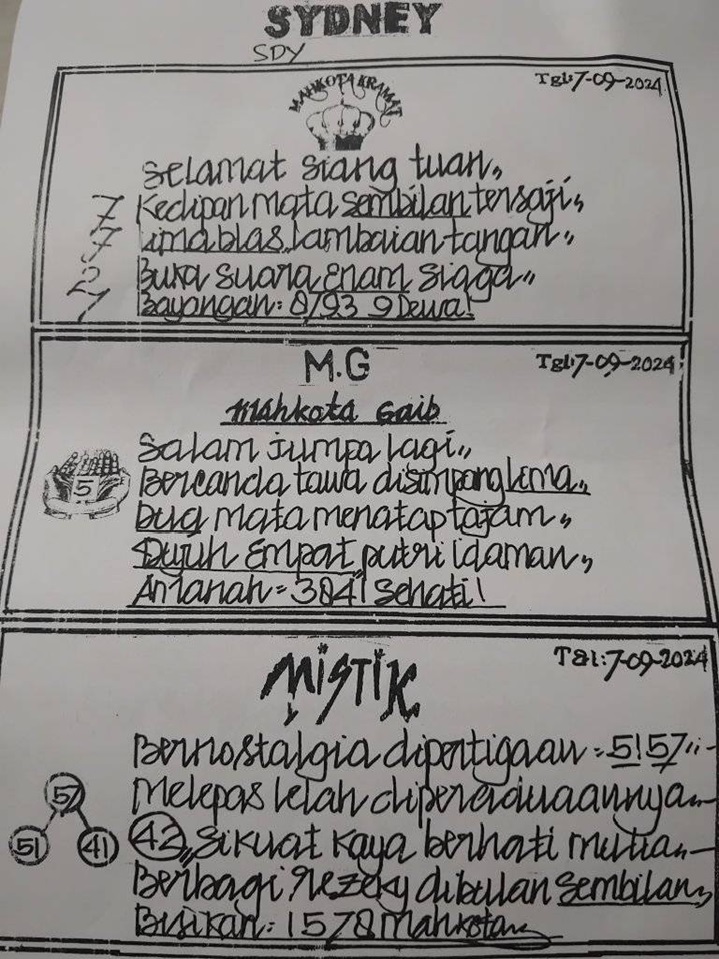 SYDNEY
SDY
Tgl:7-09-2024
MAHKOTA KRAMAT
Selamat siang tuan,,
7 Kedipan mata sembilan tersaji,,
7 Lima blas,, lambaian tangan,,
2 Buka suara enam sigga,,
7 Bayangan: 8793 9 Dewa!
M.G
Tgl:7-09-2024
Mahkota Gaib
Salam jumpa lagi,,
5 Bercanda tawa disimpang lima,,
Dua mata menatap tajam,,
Dujuh Empat putri idaman,,
Amanah = 3841 Sehati!
MISTIK
Tgl:7-09-2024
Bernostalgia dipertigaan = 5157,,-
57 Melepas lelah diperaduaannya,,-
51 41 42,, Sikuat kaya berhati mutia,,-
Berbagi rezeky dibulan sembilan,,
Bisikan: 1578 Mahkota,,